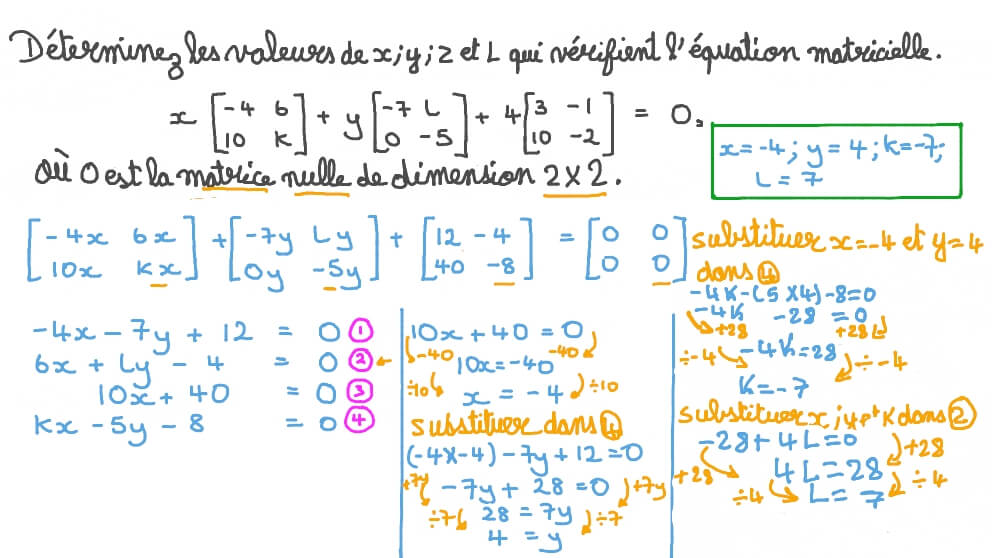 Déterminez les valeurs de x; y; z et L qui vérifient l'équation matricielle.
x [-4 6 10 K] + y [-7 L 0 -5] + 4 [3 -1 10 -2] = 0,
où 0 est la matrice nulle de dimension 2 X 2.
x = -4; y = 4; K = -7;
L = 7
[-4x 6x 10x Kx] + [-7y Ly 0y -5y] + [12 -4 40 -8] = [0 0 0 0]
-4x - 7y + 12 = 0 ①
6x + Ly - 4 = 0 ② ←
10x + 40 = 0 ③
Kx - 5y - 8 = 0 ④
10x + 40 = 0
-40 10x = -40 -40
÷10 x = -4 ÷10
substituer dans ①
(-4X-4) - 7y + 12 = 0
+7y -7y + 28 = 0 +7y
÷7 28 = 7y ÷7
4 = y
substituer x = -4 et y = 4
dans ④
-4K - (5 X 4) - 8 = 0
-4K -28 = 0
+28 +28
÷-4 -4K = 28 ÷-4
K = -7
substituer x; y et K dans ②
-28 + 4L = 0
+28 4L = 28 +28
÷4 L = 7 ÷4